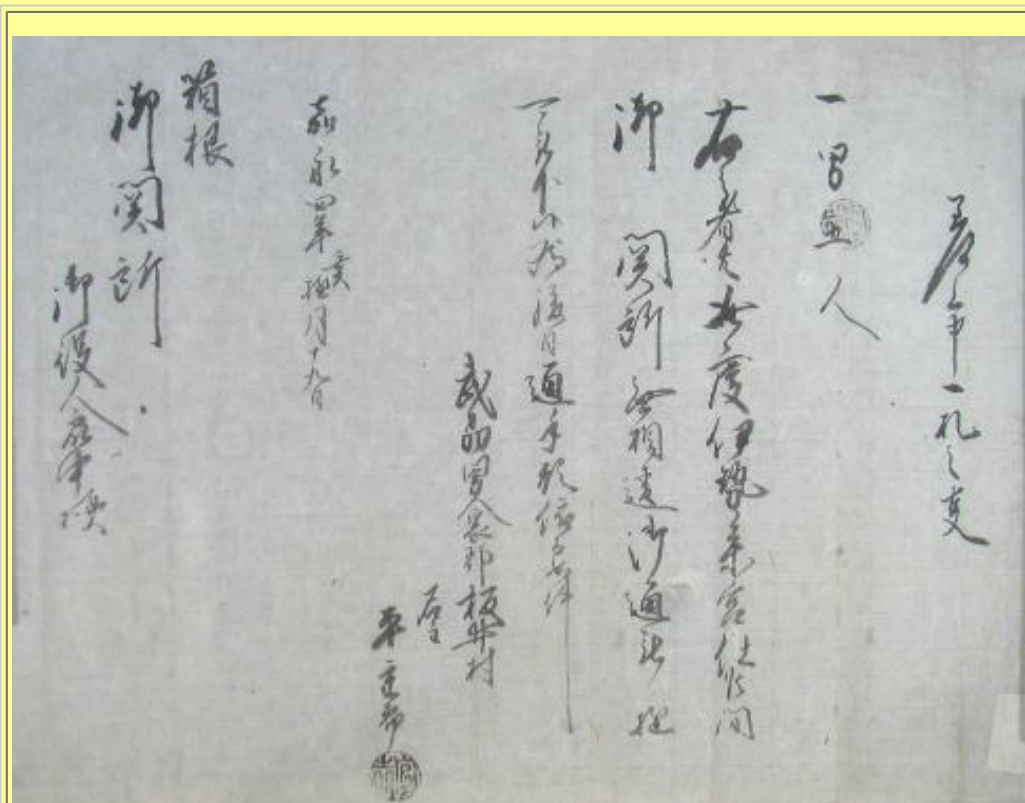 差上申一札之事
一男五人
右之者共此度伊勢参宮仕候間
御関所無相違御通被遊
可被下候為後日通手形依而如件
武州男衾郡板井村
名主
嘉永四年亥極月十九日
箱根
御関所
御役人衆中様